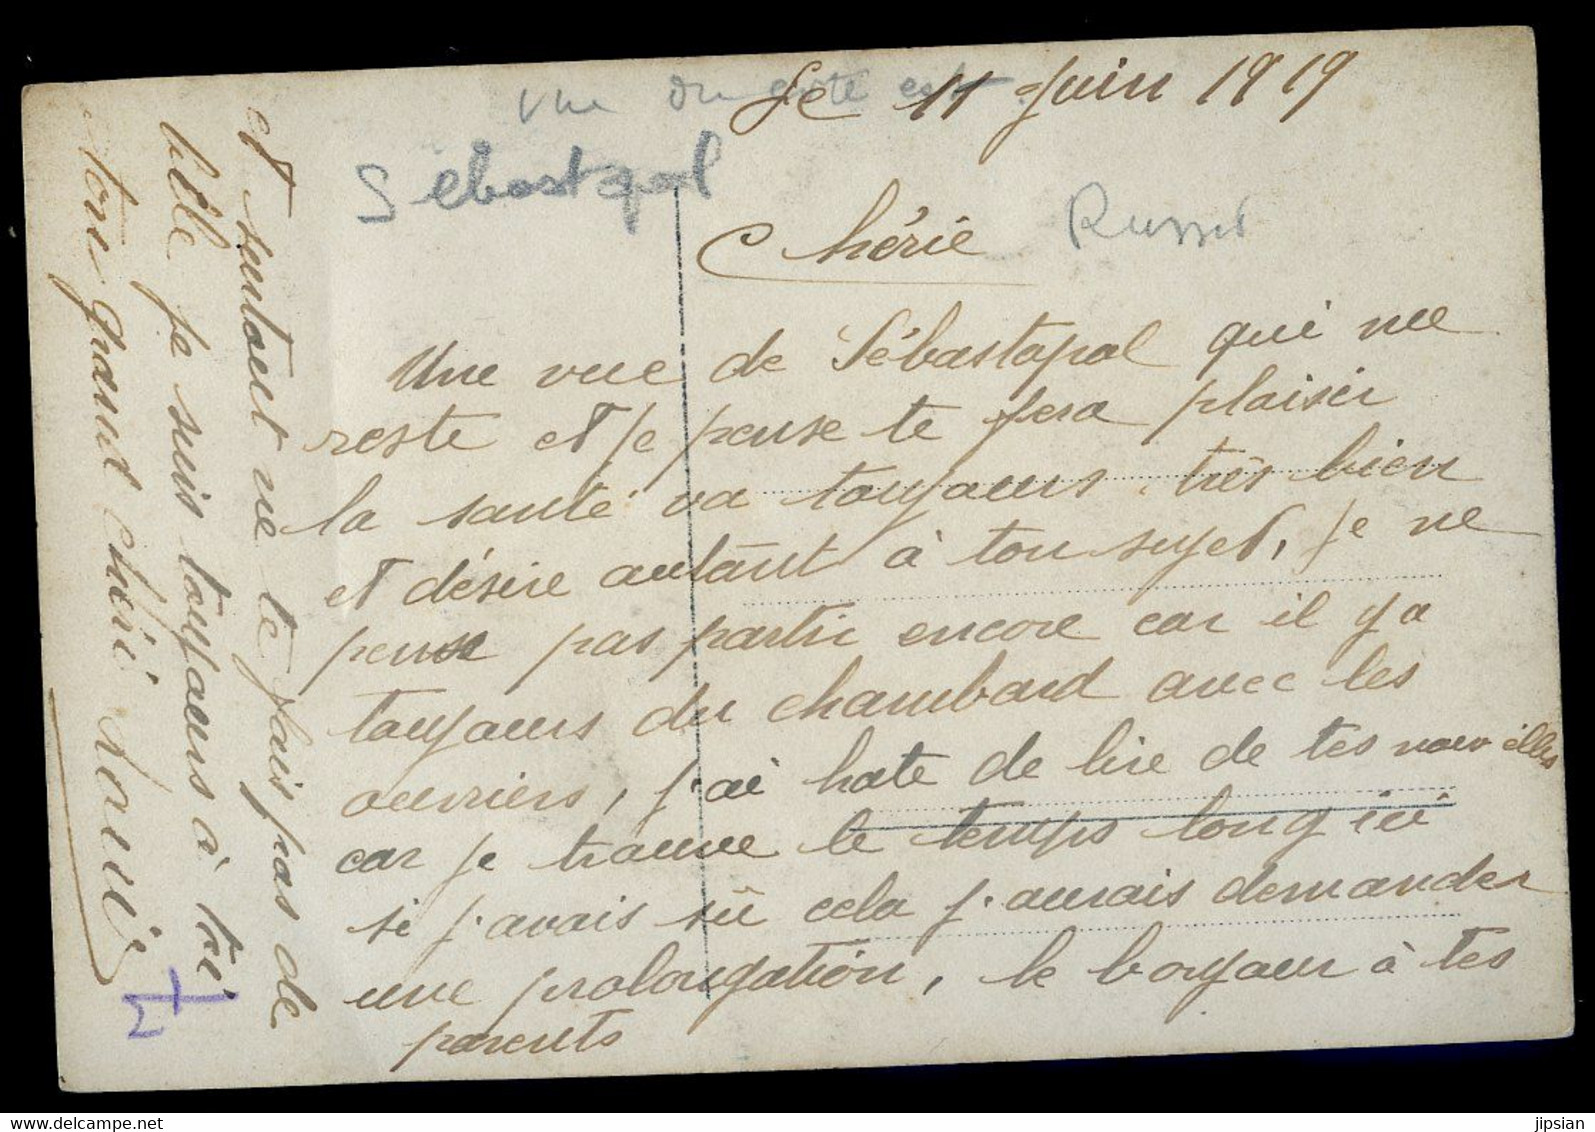 vue du coté est
Le 11 Juin 1919
Sebastopol
Russie
Chérie
Une vue de Sébastopol qui me
reste et je pense te fera plaisir
la santé va toujours très bien
et désire autant à ton sujet, je ne
pense pas partir encore car il y a
toujours du chambard avec les
ouvriers, j'ai hate de lire de tes nouvelles
car je trouve le temps long ici
si j'avais sû cela j'aurais demander
une prolongation, le bonjour à tes
parents
et surtout ne te fais pas de
bile je suis toujours à toi
ton grand chéri
jipsian